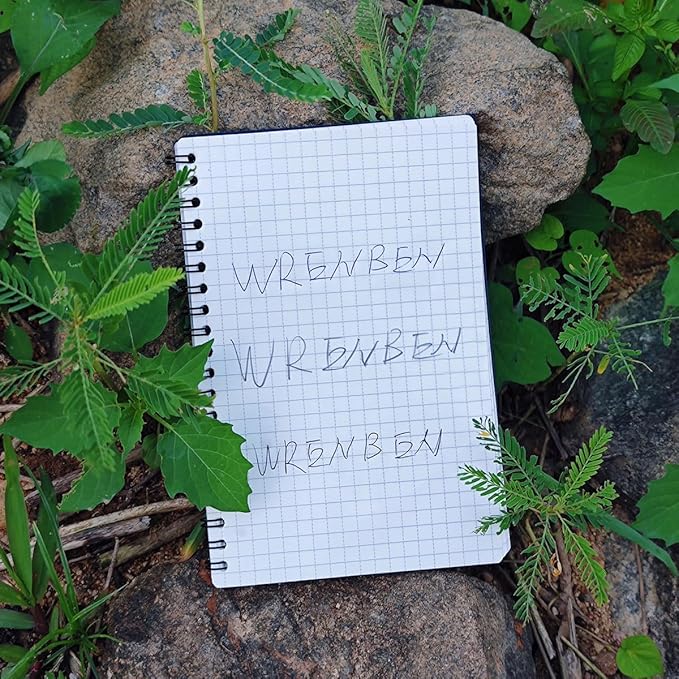 WRENBEN
WRENBEN
WRENBEN